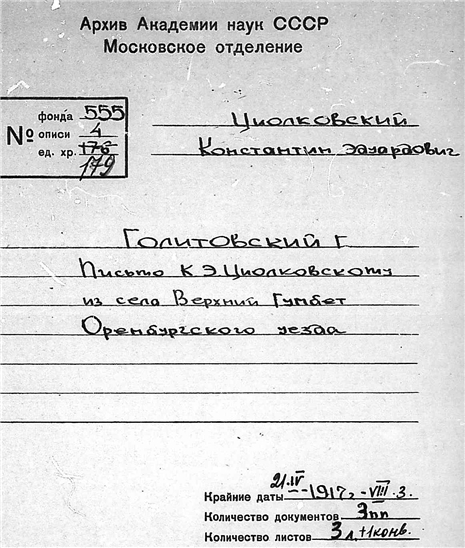 Архив Академии наук СССР
Московское отделение
№ фонда 555
описи 4
ед. хр. 178
179
Циолковский
Константин Эдуардович
Голитовский Г.
Письмо К.Э. Циолковскому
из села Верхний Гумбет
Оренбургского уезда
21.IV
Крайние даты - 1917г. - VIII.3.
Количество документов 3пп
Количество листов 3л.+1конв.